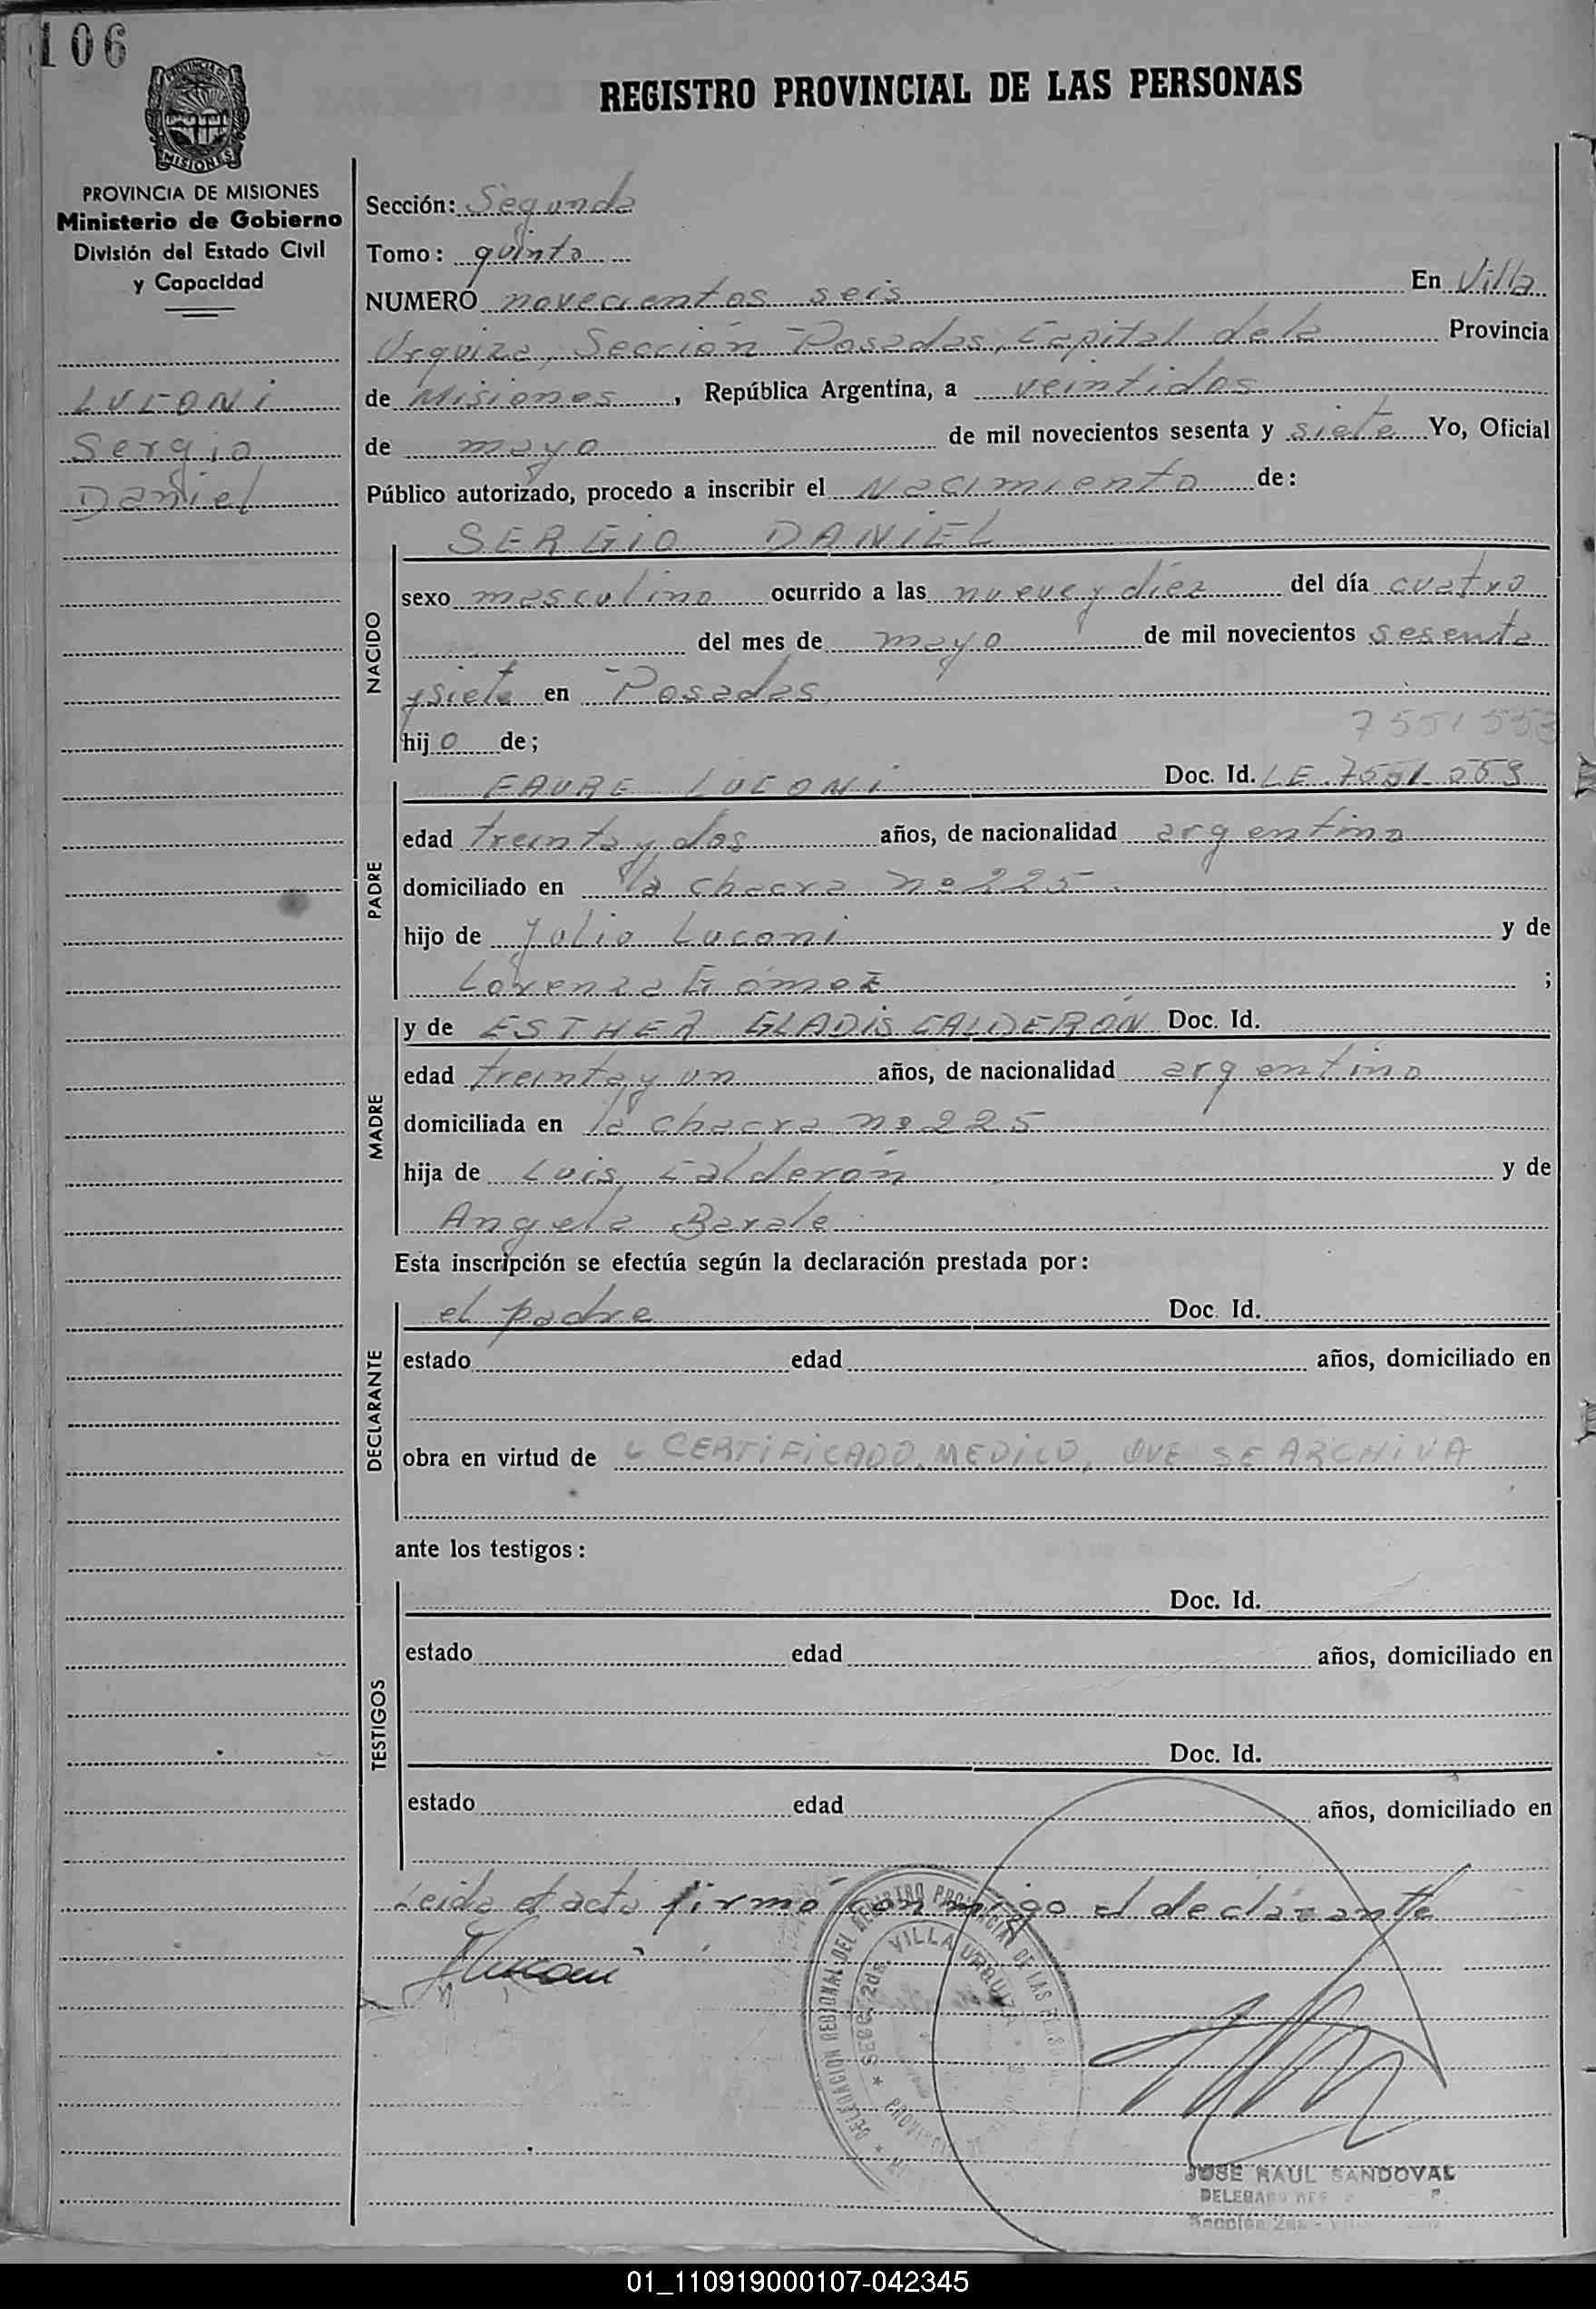 106
PROVINCIA DE
MISIONES
REGISTRO PROVINCIAL DE LAS PERSONAS
PROVINCIA DE MISIONES
Ministerio de Gobierno
División del Estado Civil
y Capacidad
LUCONI
Sergio
Daniel
Sección: Segunda
Tomo: quinto
NUMERO novecientos seis En Villa
Urquiza, Sección Posadas, Capital de la Provincia
de Misiones, República Argentina, a veintidos
de mayo de mil novecientos sesenta y siete Yo, Oficial
Público autorizado, procedo a inscribir el Nacimiento de:
NACIDO
SERGIO DANIEL
sexo masculino ocurrido a las nueve y diez del día cuatro
del mes de mayo de mil novecientos sesenta
y siete en Posadas,
7551553
hijo de;
PADRE
FAURE LUCONI Doc. Id. LE.
edad treinta y dos años, de nacionalidad argentino
domiciliado en la chacra nº 225.
hijo de Julio Luconi y de
Lorenza Gómez ;
MADRE
y de ESTHER GLADIS CALDERÓN Doc. Id.
edad treinta y un años, de nacionalidad argentino
domiciliada en la chacra nº 225
hija de Luis Calderón y de
Angela Barale
Esta inscripción se efectúa según la declaración prestada por:
DECLARANTE
el padre Doc. Id.
estado edad años, domiciliado en
obra en virtud de CERTIFICADO MEDICO, QUE SE ARCHIVA
ante los testigos:
TESTIGOS
Doc. Id.
estado edad años, domiciliado en
Doc. Id.
estado edad años, domiciliado en
Leida el acta firmó conmigo el declarante
DELEGACION REGIONAL DEL REGISTRO PROVINCIAL DE LAS
SECC. 2da. VILLA URQUIZA
JOSE RAUL SANDOVAL
Sección 2da -
01_110919000107-042345